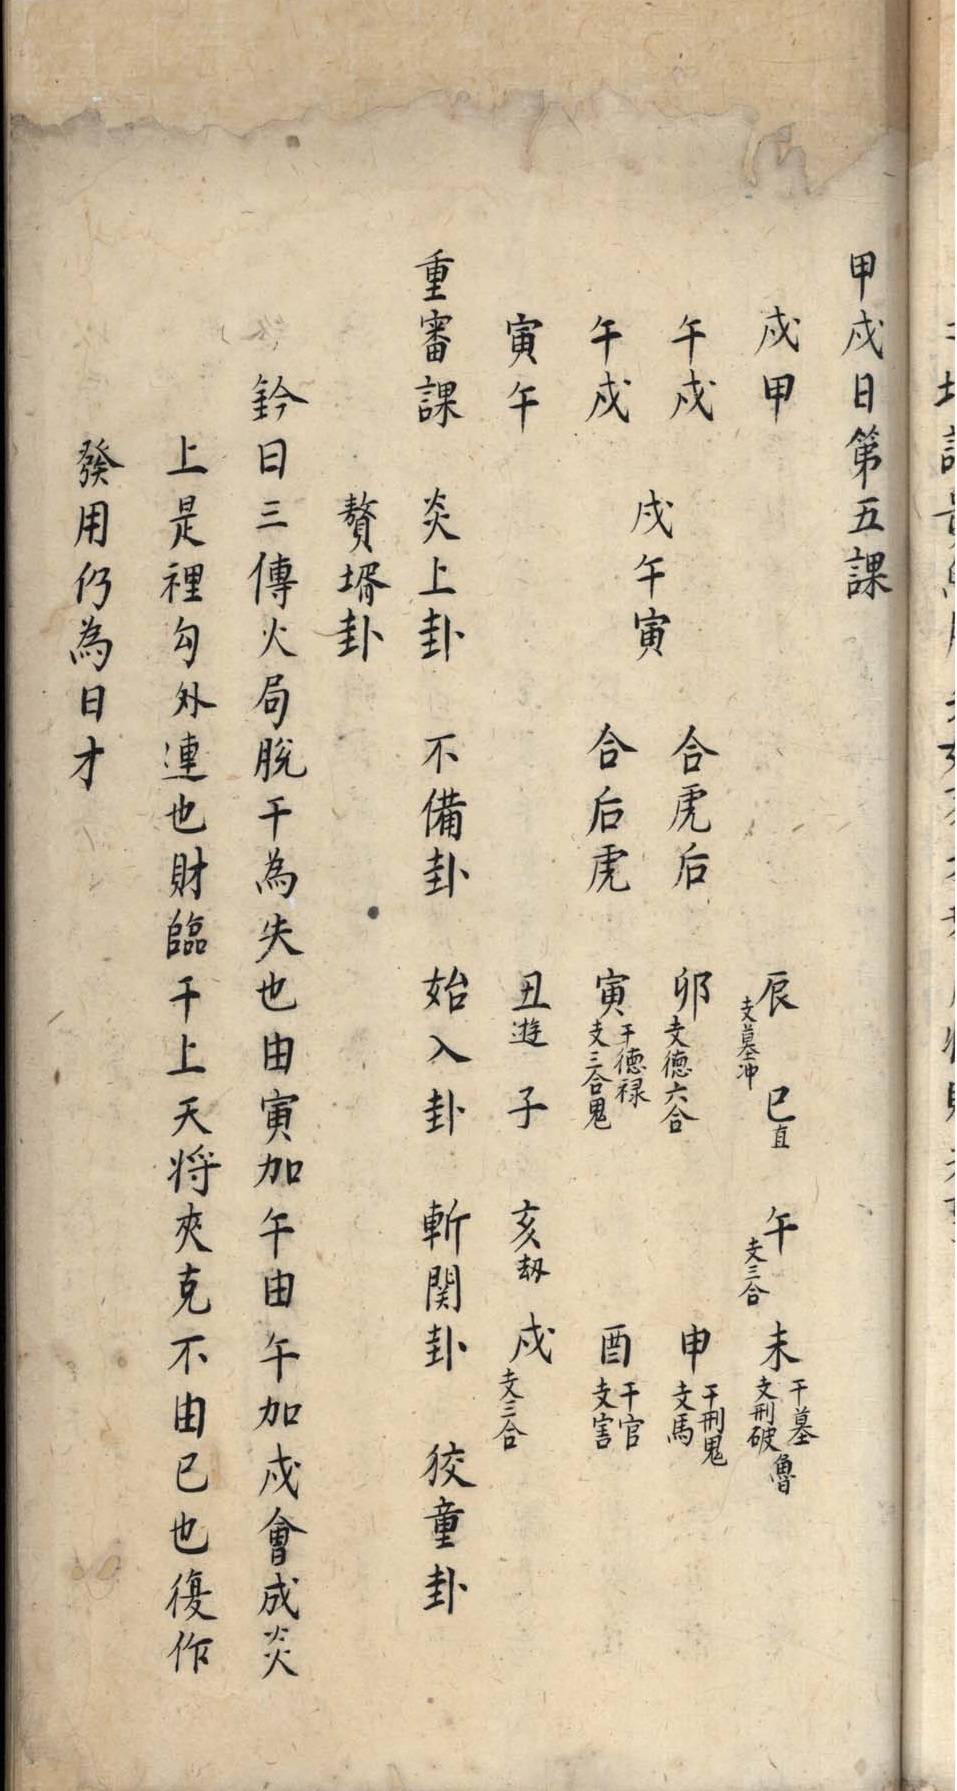 甲戌日第五課
戌甲　辰支墓冲　巳直　午支三合　未干墓支刑破魯
午戌　合虎后　卯支德六合　申干刑鬼支馬
戌午寅
午戌　合后虎　寅干德禄支三合鬼　酉干官支害
寅午　丑遊　子　亥刼　戌支三合
重審課　炎上卦　不備卦　始入卦　斬関卦　狡童卦
贅壻卦
鈐曰三傳火局脫干為失也由寅加午由午加戌會成炎
上是裡勾外連也財臨干上天将夾克不由已也復作
發用仍為日才